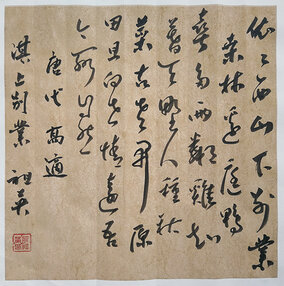 依々西山下别業
桑林邊庭鴨
喜多雨鄰雞知
暮天野人種秋
菜古老開原
田且向世情遠吾
今聊自然
唐代高適
淇上别業 祖英